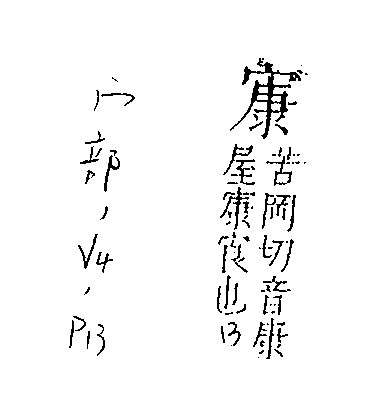 㝩
苦岡切音康
屋康㝗也13
宀部,V4,P13